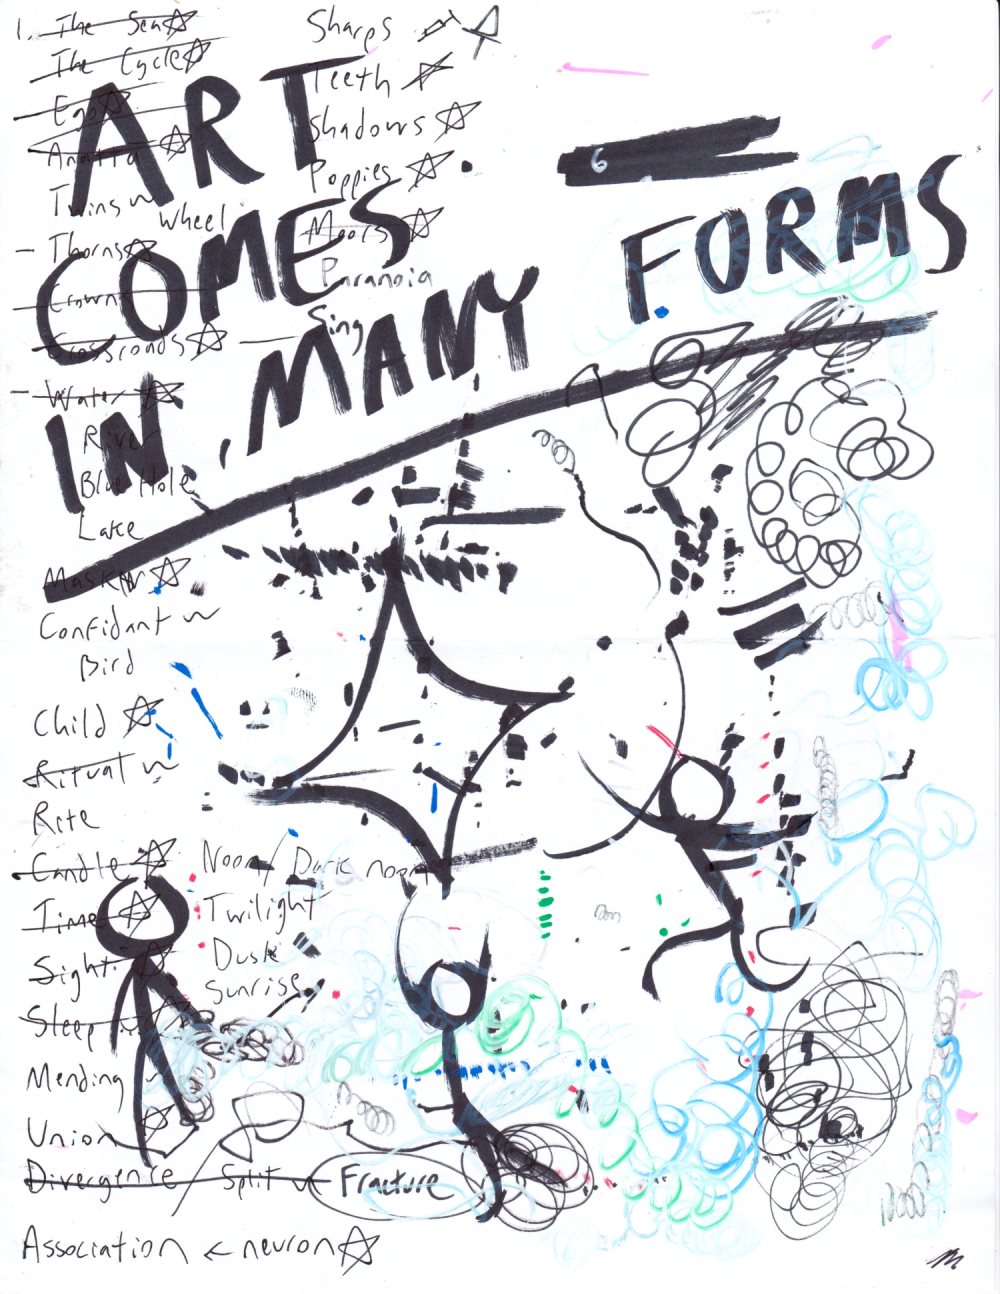 1. The Sea
The Cycle
Ego
Anatta
Twins
Wheel
Thorns
Crown
Crossroads
Water
River
Blue Hole
Lake
Confidant
Bird
Child
Ritual
Rite
Candle
Time
Sight
Sleep
Mending
Union
Divergence / Split Fracture
Association ← neuron
Sharps
Teeth
Shadows
Poppies
Moors
Paranoia
Sing
Noon / Dark noon
Twilight
Dusk
Sunrise
6
ART
COMES
IN MANY FORMS